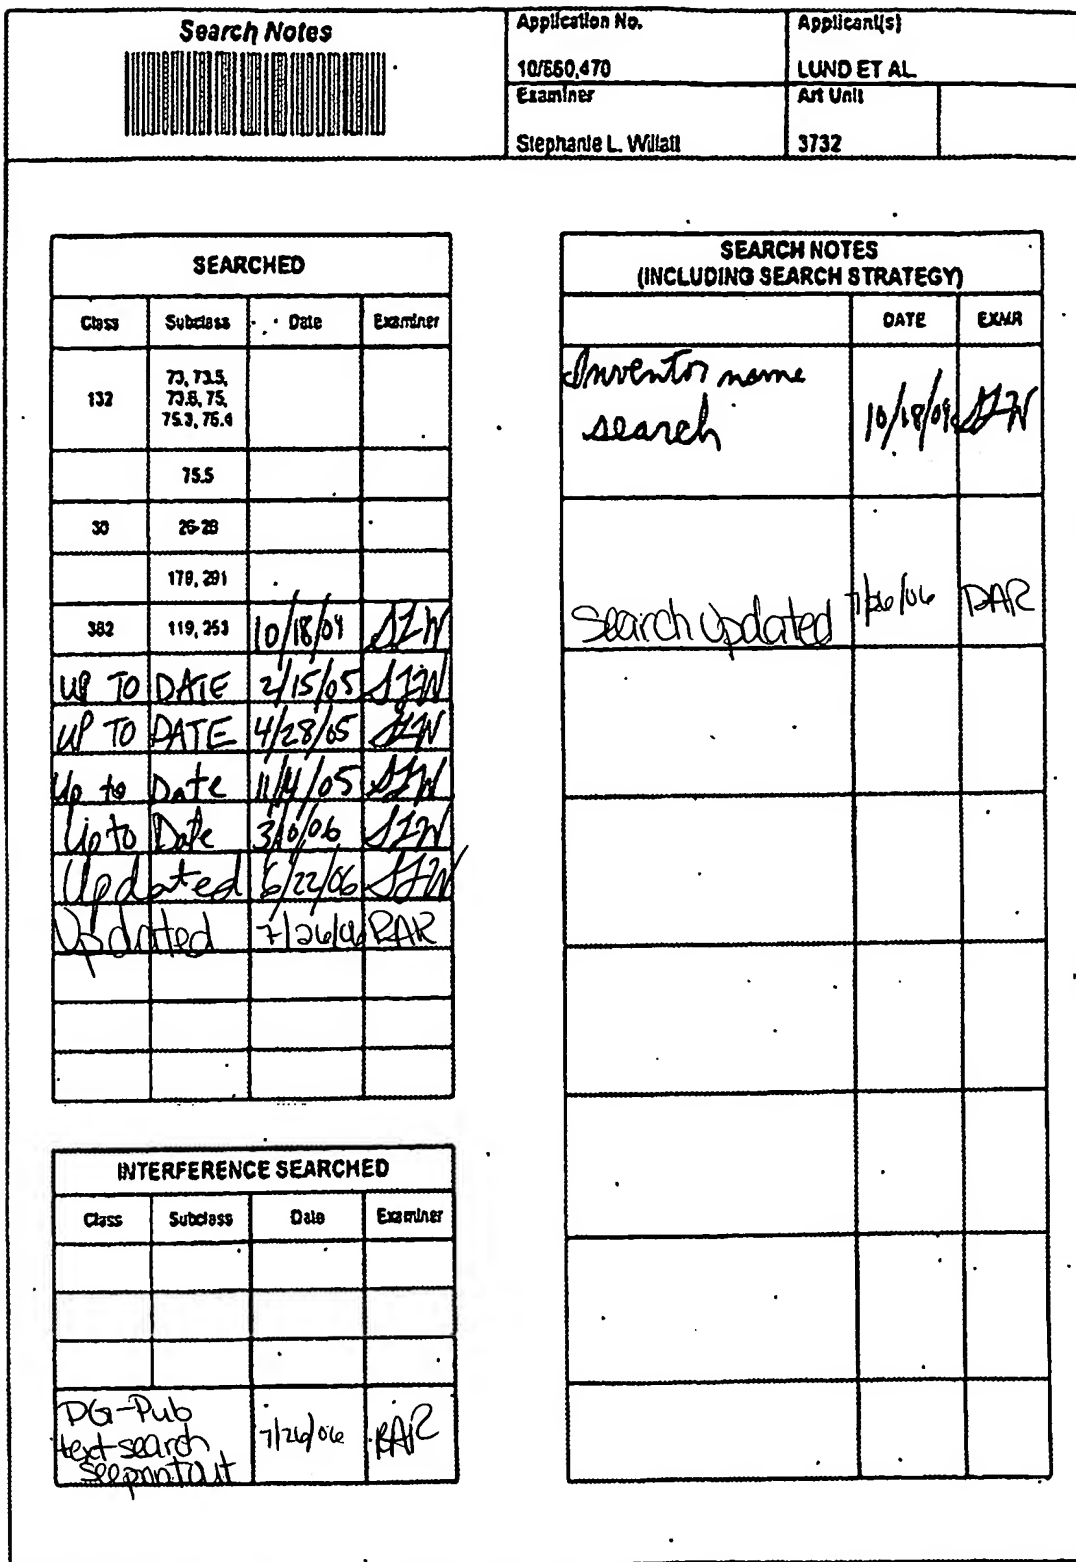 Search Notes
Application No.
Applicant(s)
10/660,470
LUND ET AL.
Examiner
Art Unit
Stephanie L. Willatt
3732
SEARCHED
Class Subclass Date Examiner
132
73, 73.5,
73.6, 75,
75.3, 75.4
75.5
30 26-28
178, 291
382 119, 253 10/18/04 SLW
UP TO DATE 2/15/05 SLW
UP TO DATE 4/28/05 SLW
Up to Date 11/4/05 SLW
Up to Date SLW
Updated 6/22/06 SLW
Updated 7/26/06 RAR
INTERFERENCE SEARCHED
Class Subclass Date Examiner
PG-Pub
text-search 7/26/06 RAR
see printout
SEARCH NOTES
(INCLUDING SEARCH STRATEGY)
DATE EXMR
Inventor name
search 10/18/04 SLW
Search updated 7/26/06 RAR